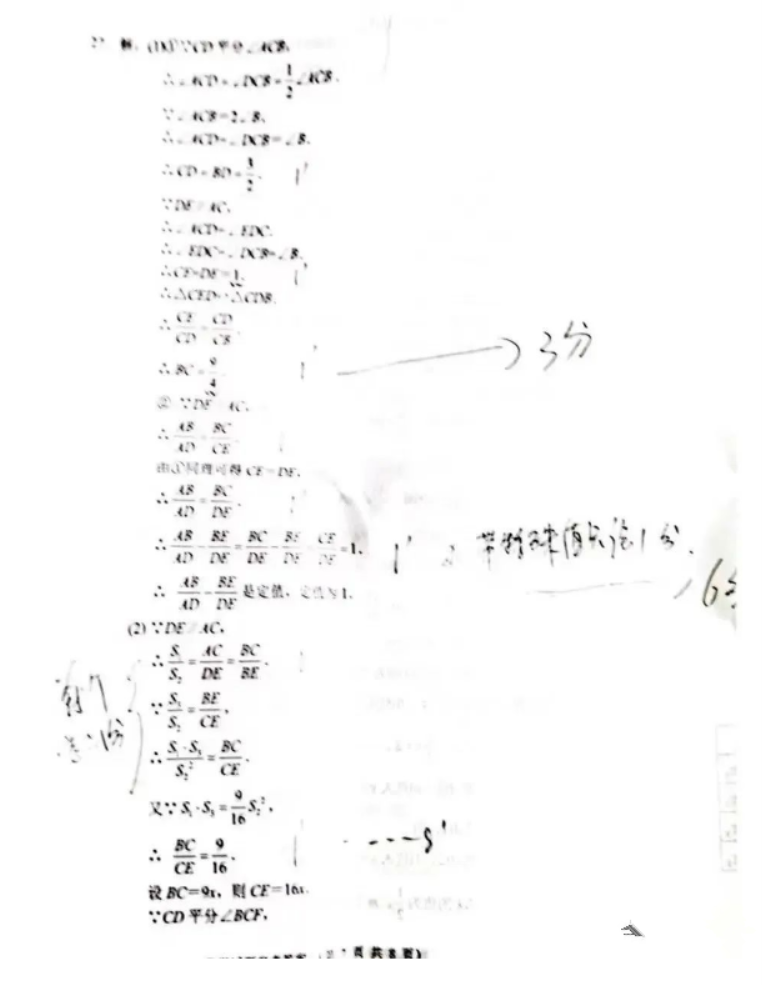 27. 解: (1)①∵CD平分∠ACB,
∴∠ACD=∠DCB=1/2∠ACB.
∵∠ACB=2∠B,
∴∠ACD=∠DCB=∠B.
∴CD=BD=3/2. 1'
∵DE∥AC,
∴∠ACD=∠EDC.
∴∠EDC=∠DCB=∠B.
∴CE=DE=1. 1'
∴△CED∽△CDB.
∴CE/CD=CD/CB.
∴BC=9/4. 1' → 3分
②∵DE∥AC,
∴AB/AD=BC/CE.
由①同理可得CE=DE,
∴AB/AD=BC/DE. 1'
∴AB/AD-BE/DE=BC/DE-BE/DE=CE/DE=1. 1' 带特殊值 1分.
∴AB/AD-BE/DE是定值,定值为1. 6分
(2)∵DE∥AC,
∴S₁/S₂=AC/DE=BC/BE.
∵S₃/S₂=BE/CE,
∴S₁·S₃/S₂²=BC/CE.
又∵S₁·S₃=9/16S₂²,
∴BC/CE=9/16. 1' ----8'
设BC=9x,则CE=16x.
∵CD平分∠BCF,
页共8页)